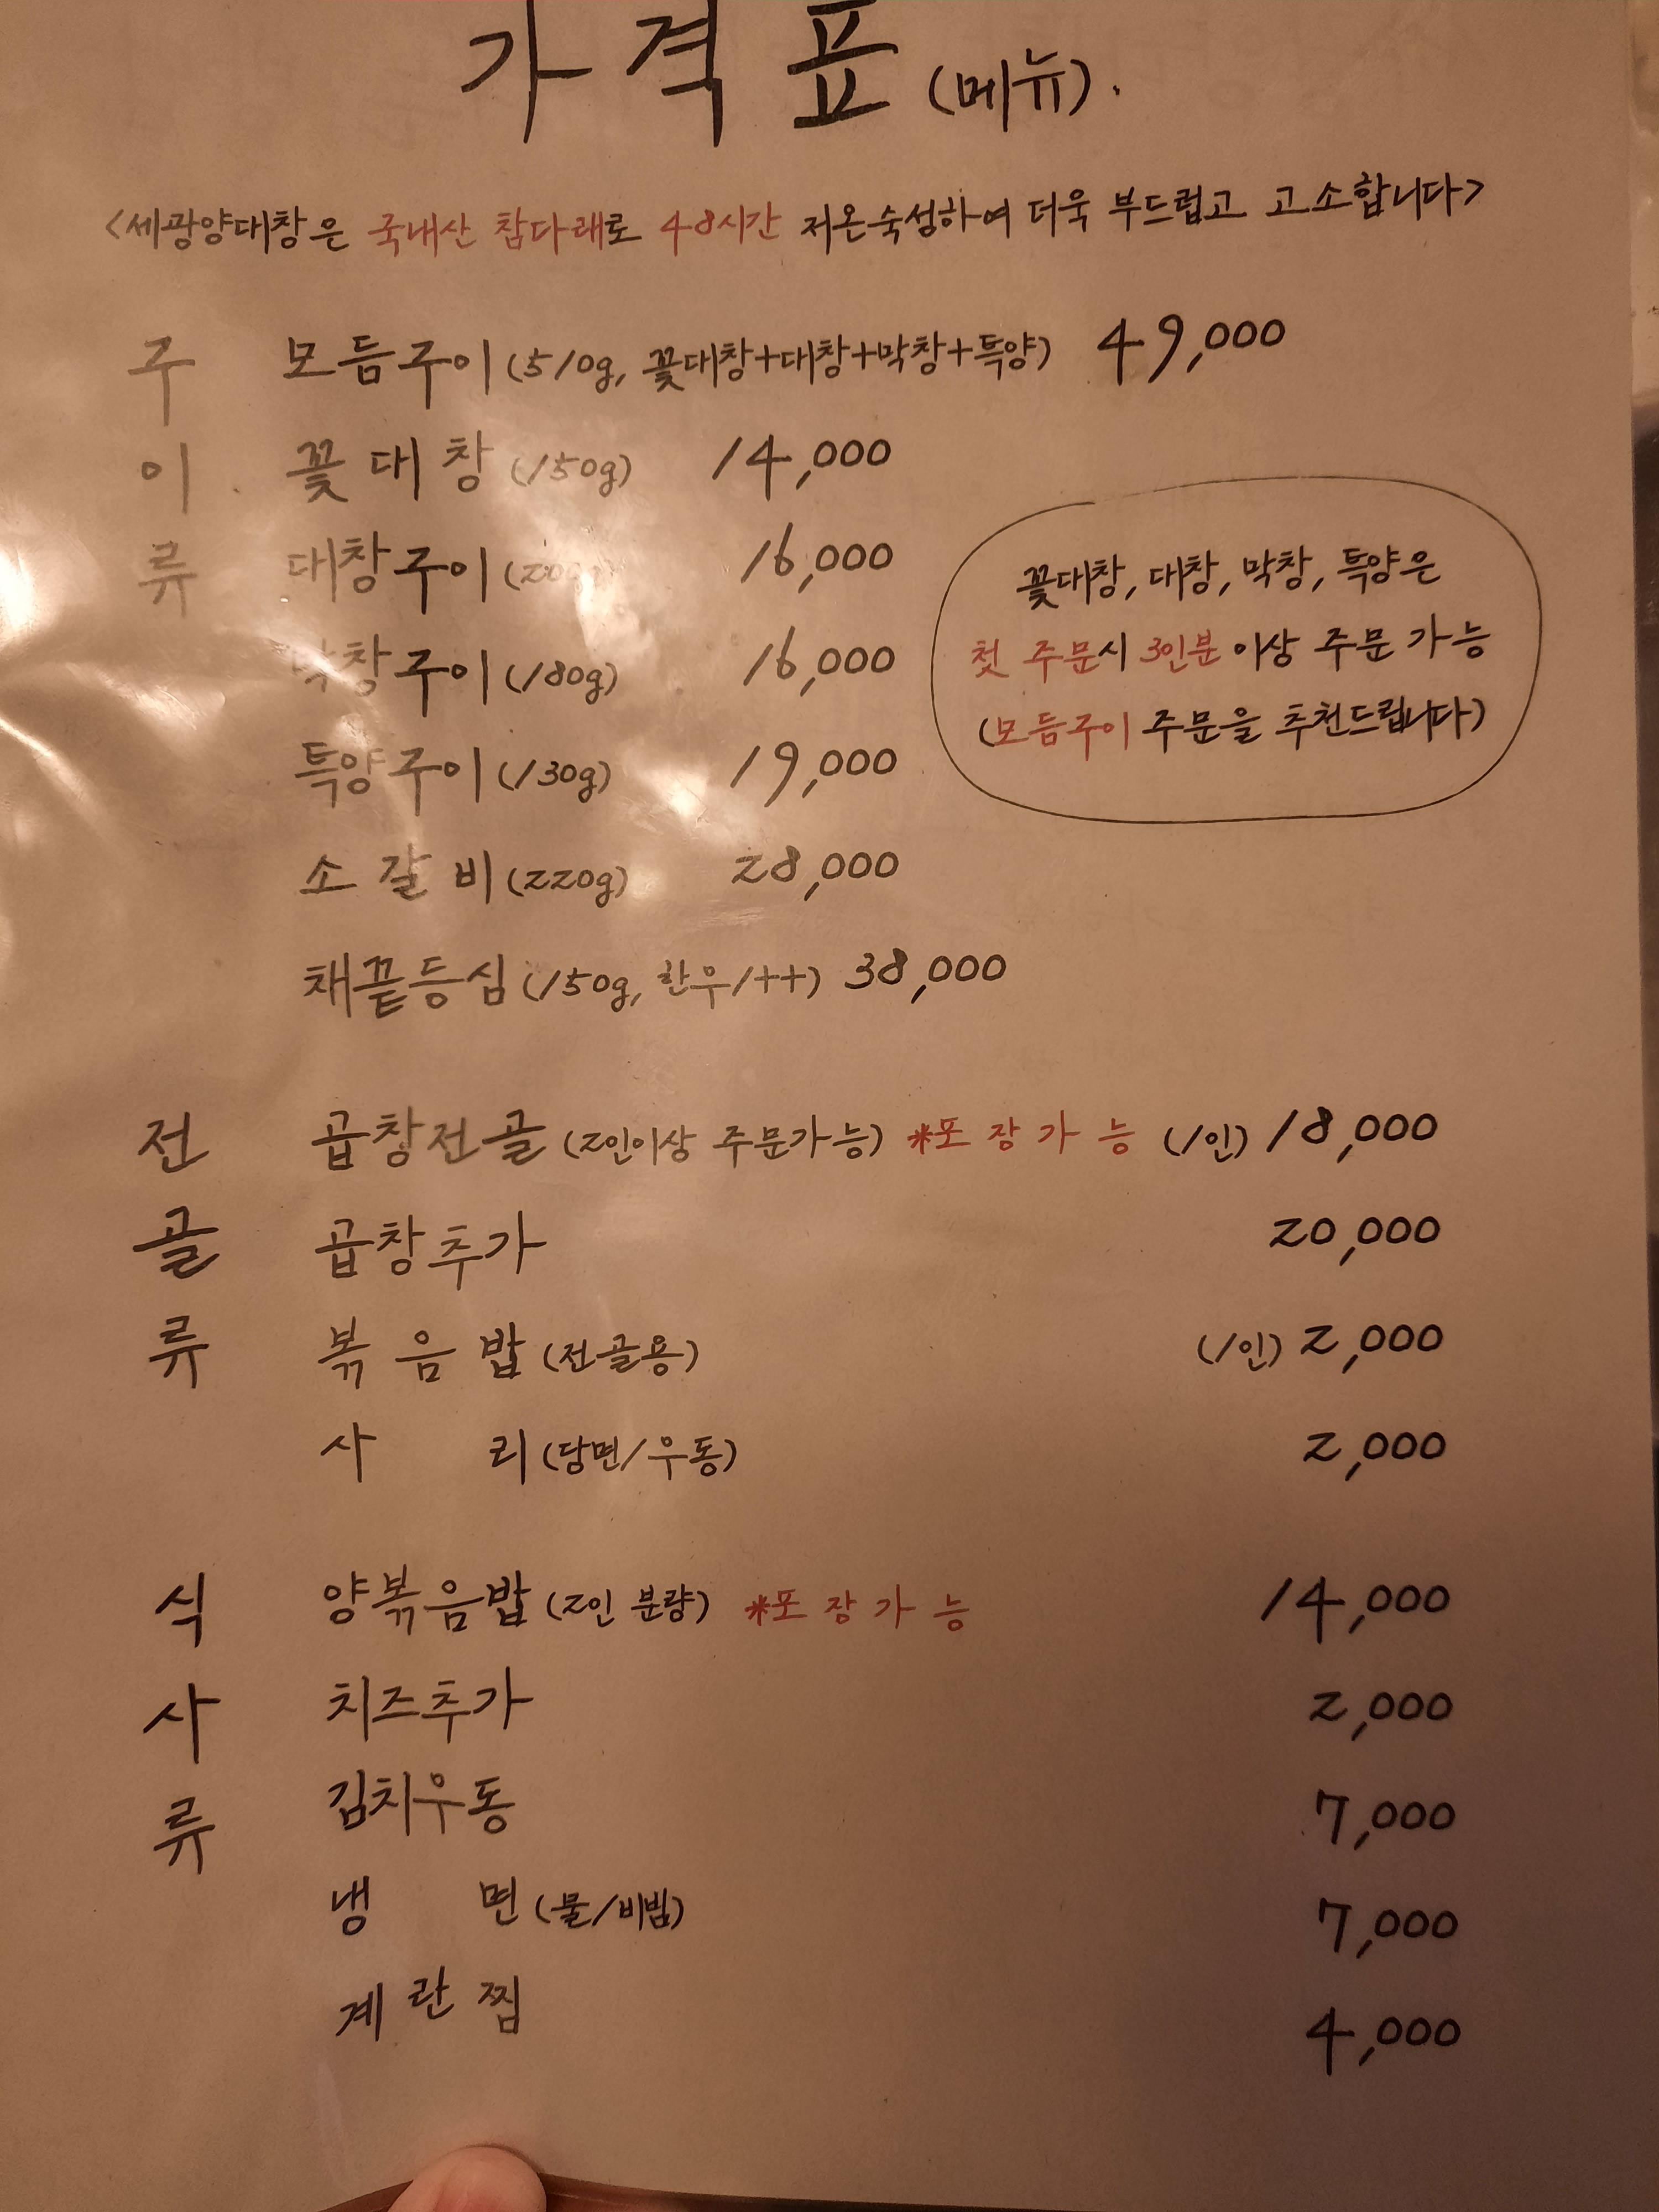 가격표 (메뉴).
<세광양대창은 국내산 참다래로 48시간 저온숙성하여 더욱 부드럽고 고소합니다>
구이류
모듬구이 (510g, 꽃대창+대창+막창+특양) 49,000
꽃대창 (150g) 14,000
대창구이 16,000
막창구이 (180g) 16,000
특양구이 (130g) 19,000
소갈비 (220g) 28,000
채끝등심 (150g, 한우1++) 38,000
꽃대창, 대창, 막창, 특양은
첫 주문시 3인분 이상 주문 가능
(모듬구이 주문을 추천드립니다)
전골류
곱창전골 (2인이상 주문가능) *포장가능 (1인) 18,000
곱창추가 20,000
볶음밥 (전골용) (1인) 2,000
사리 (당면/우동) 2,000
식사류
양볶음밥 (2인 분량) *포장가능 14,000
치즈추가 2,000
김치우동 7,000
냉면 (물/비빔) 7,000
계란찜 4,000